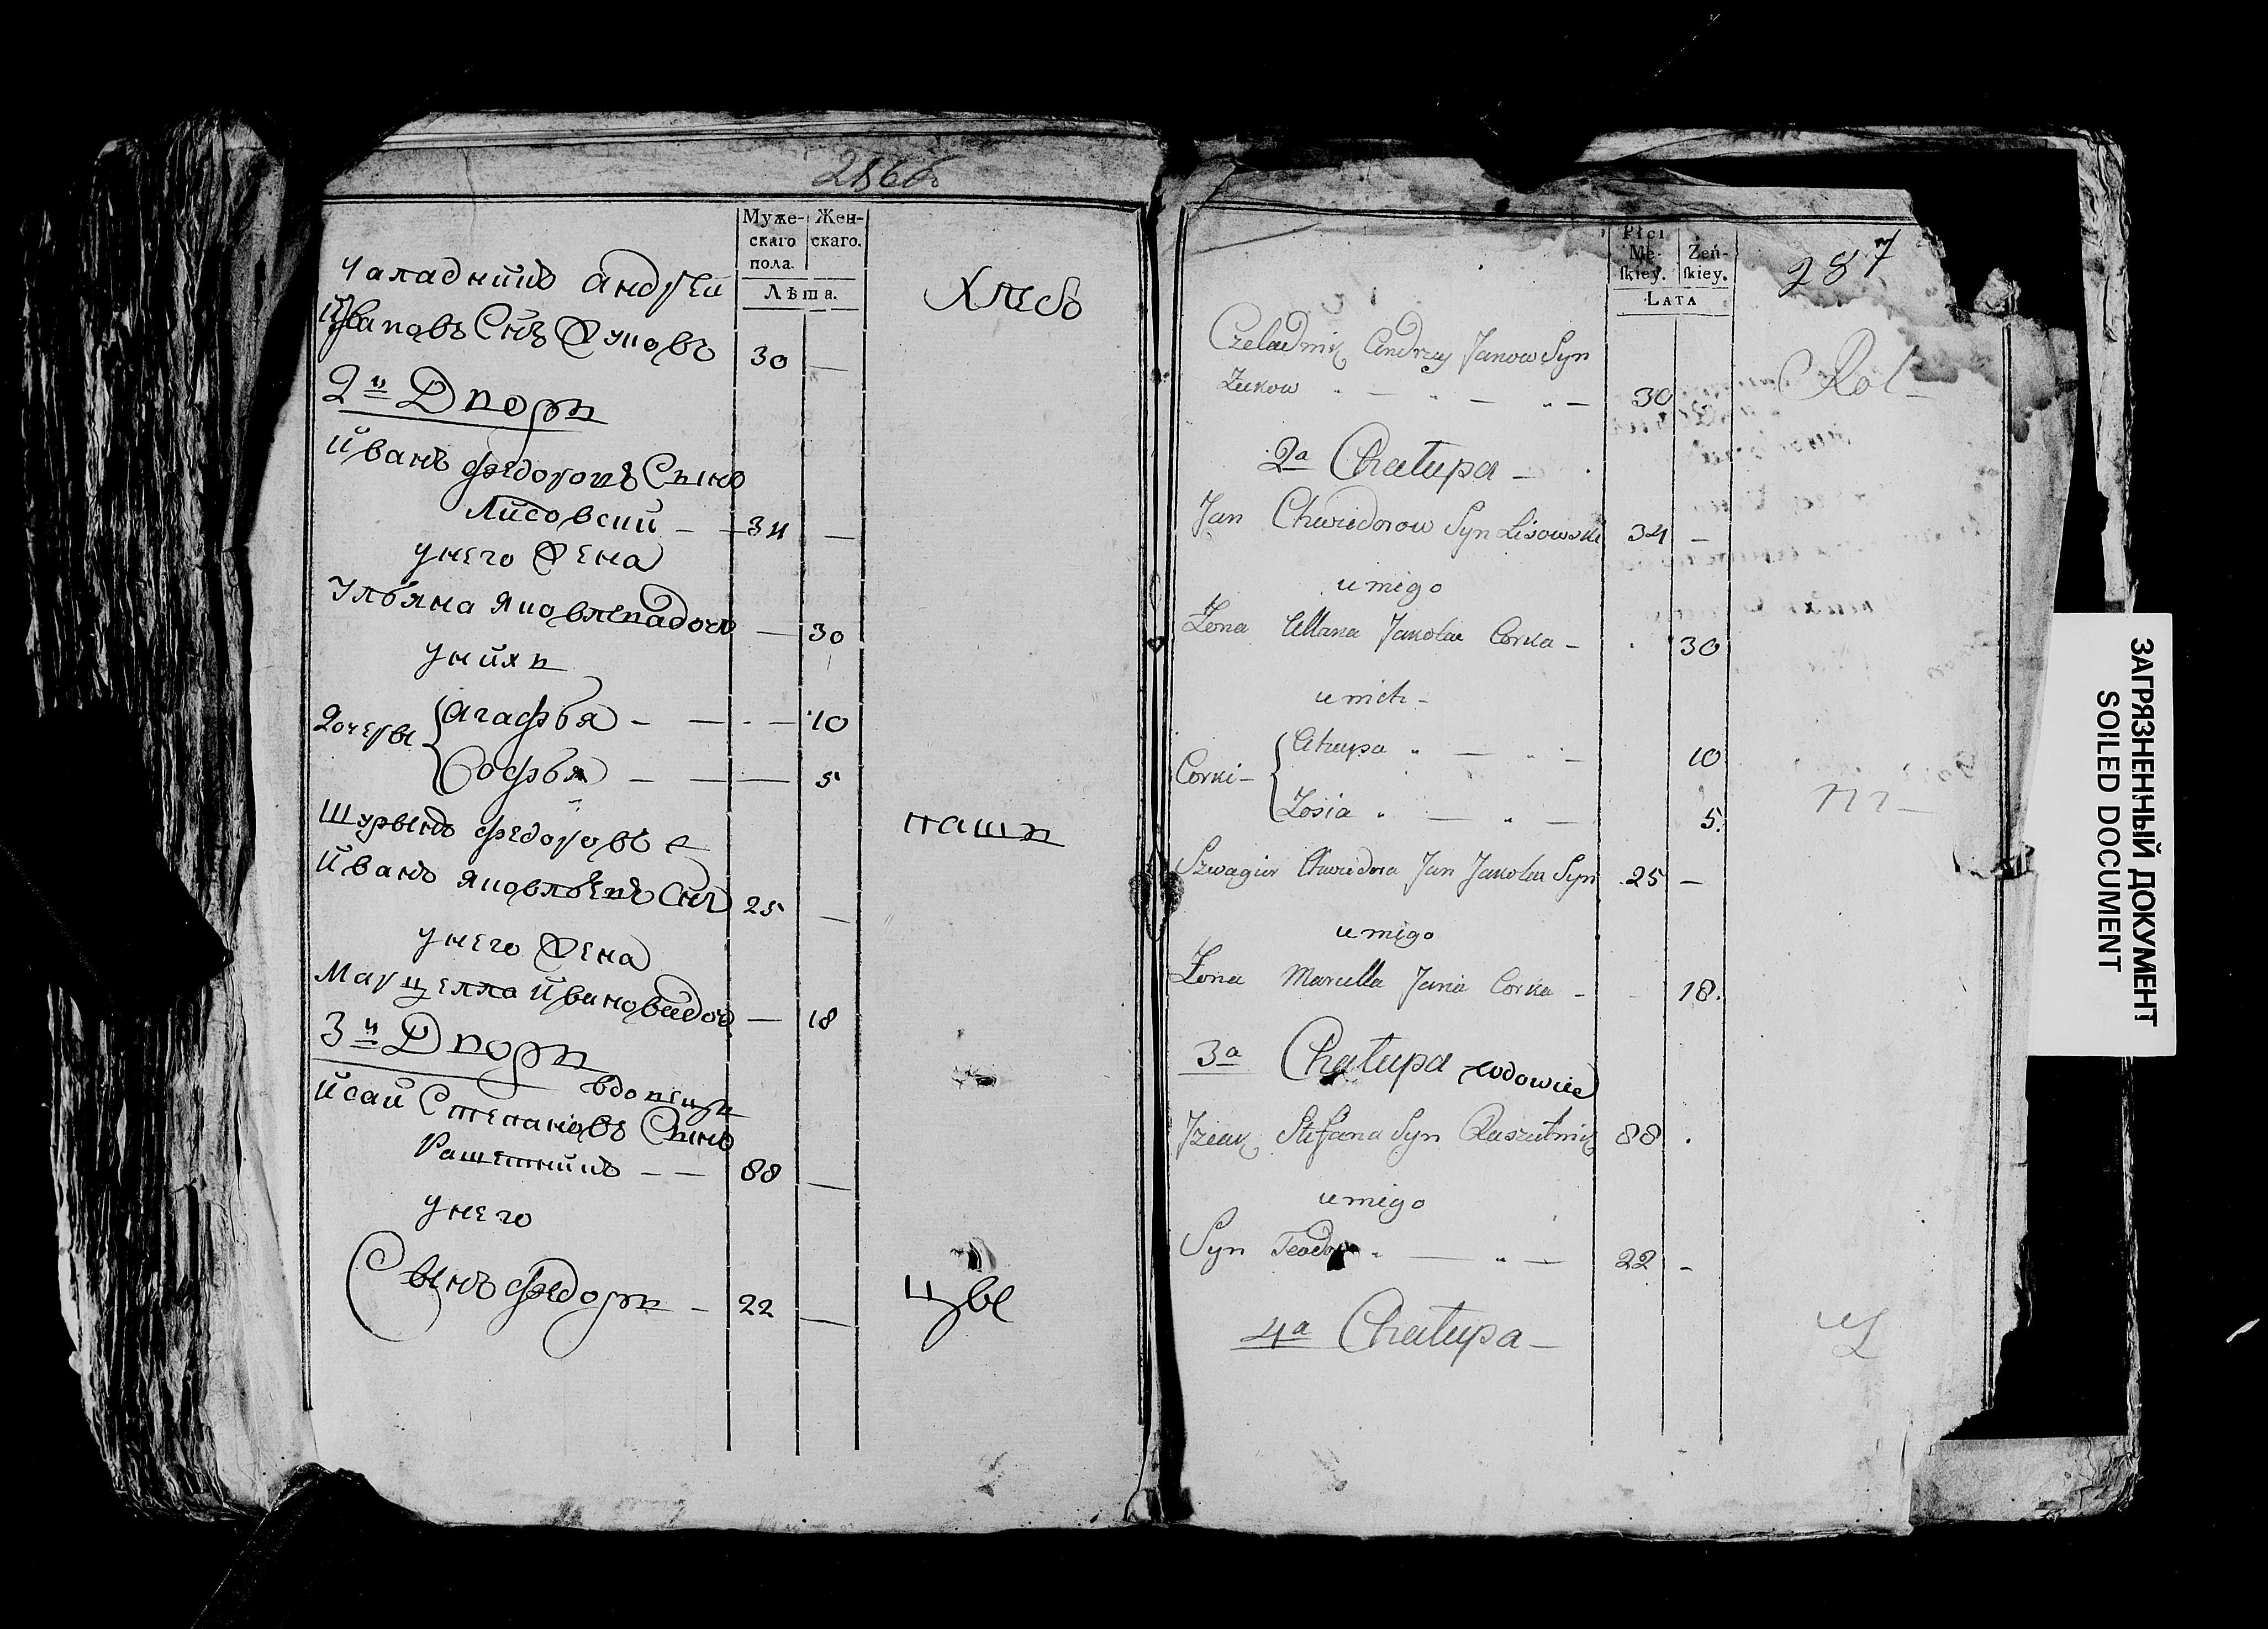 286б
Муже-
скаго
пола.
Жен-
скаго.
Лѣта.
Чаладникъ Андрей
Ивановъ Снъ Жуковъ 30 —
Хлебо
2й Дворъ
Иванъ Федоровъ Сынъ
Лисовский — 34 —
унего Жена
Ульяна Яковлевадочь — 30
унихъ
Дочеры { Агафья — — - — 10
Софья — — — 5
Шурынъ Федоровъ
Иванъ Яковлевъ Снъ 25 —
паш
унего Жена
Марцелла Ивановадоч — 18
3й Дворъ
вдовецъ
Исай Степановъ Сынъ
Рашетникъ — — 88 —
унего
Сынъ Федоръ — 22 —
цвы
Płci
Mę-
skiey.
Żeń-
skiey.
LATA
287
Czeladnik Andrzey Janow Syn
Żukow 30
Rol
2a Chałupa —
Jan Chwiedorow Syn Lisowski 34 —
u niego
Żona Ullana Jakoba Corka — 30
u nich —
Corki — { Ahapa 10
Zosia 5.
Szwagier Chwiedora Jan Jakoba Syn 25 —
u niego
Żona Marcella Jana Corka — 18.
3a Chałupa wdowiec
Izaak Stefana Syn Raszetnik 88 .
u niego
Syn Teodor 22 —
4a Chałupa —
ЗАГРЯЗНЕННЫЙ ДОКУМЕНТ
SOILED DOCUMENT